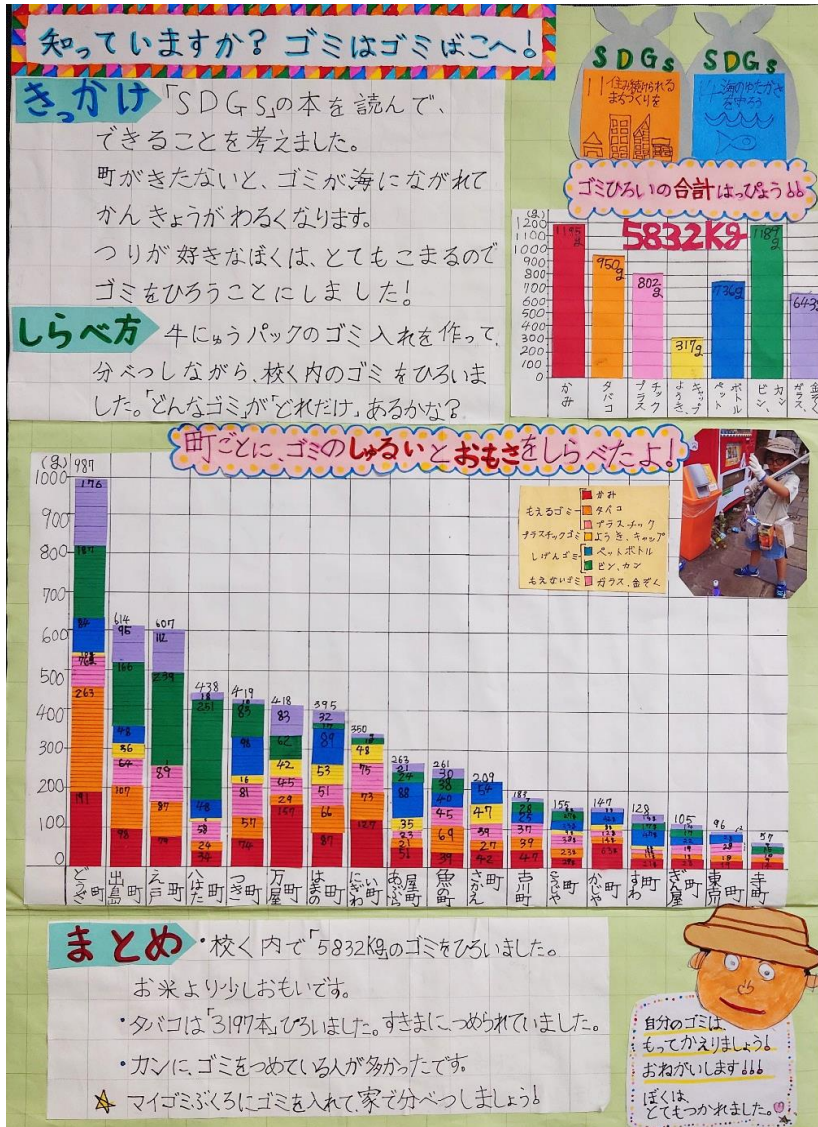 知っていますか？ゴミはゴミばこへ！
SDGs
11住み続けられる
まちづくりを
SDGs
14海のゆたかさ
を守ろう
きっかけ
「SDGs」の本を読んで、
できることを考えました。
町がきたないと、ゴミが海にながれて
かんきょうがわるくなります。
つりが好きなぼくは、とてもこまるので
ゴミをひろうことにしました！
しらべ方
牛にゅうパックのゴミ入れを作って、
分べつしながら、校く内のゴミをひろいま
した。「どんなゴミ」が「どれだけ」あるかな？
ゴミひろいの合計はっぴょう!!
5832Kg
(g)
1200
1100
1000
900
800
700
600
500
400
300
200
100
0
1195g
950g
802g
317g
736g
1189g
643g
かみ
タバコ
プラスチック
ようき、キャップ
ペットボトル
ビン、カン
ガラス、金ぞく
町ごとに、ゴミのしゅるいとおもさをしらべたよ！
もえるゴミ
かみ
タバコ
プラスチック
プラスチックゴミ
ようき、キャップ
しげんゴミ
ペットボトル
ビン、カン
もえないゴミ
ガラス、金ぞく
(g)
1000
900
800
700
600
500
400
300
200
100
0
987
176
187
84
76
263
191
614
95
166
48
36
64
107
98
607
112
239
89
87
79
438
18
251
48
58
24
34
419
83
98
16
81
57
74
418
83
62
42
45
29
157
395
32
89
53
51
66
87
350
48
75
73
127
263
21
24
88
35
23
21
51
261
30
38
40
45
69
39
209
54
47
39
27
42
183
28
25
37
39
47
155
147
128
105
96
57
どうざ町
出島町
え戸町
八はた町
つきご町
万屋町
はまの町
にぎわい町
あぶら屋町
魚の町
さかえ町
古川町
こうじや町
かじや町
すわ町
ぎん屋町
東古川町
寺町
まとめ
・校く内で「5832Kg」のゴミをひろいました。
お米より少しおもいです。
・タバコは「3197本」ひろいました。すきまに、つめられていました。
・カンに、ゴミをつめている人が多かったです。
☆ マイゴミぶくろにゴミを入れて、家で分べつしましょう！
自分のゴミは、
もってかえりましょう！
おねがいします!!!
ぼくは、
とてもつかれました。